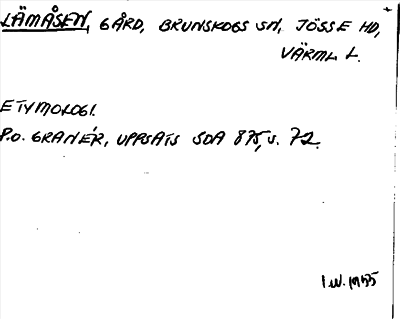 LÄMÅSEN, GÅRD, BRUNSKOGS SN, JÖSSE HD,
VÄRML. L.
ETYMOLOGI.
P.O. GRANÉR, UPPSATS SOA 875, s. 72.
1955